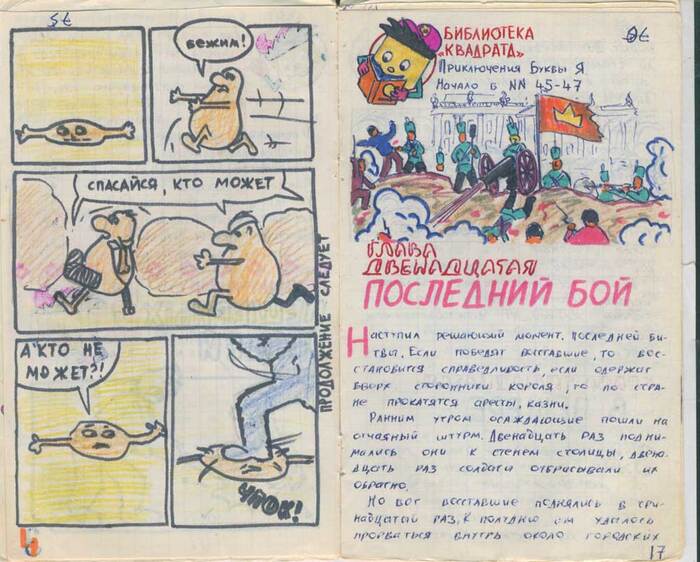 БЕЖИМ!
СПАСАЙСЯ, КТО МОЖЕТ
А КТО НЕ
МОЖЕТ?!
ЧПОК!
ПРОДОЛЖЕНИЕ СЛЕДУЕТ
БИБЛИОТЕКА
"КВАДРАТА"
Приключения Буквы Я
Начало в NN 45-47
ГЛАВА
ДВЕНАДЦАТАЯ
ПОСЛЕДНИЙ БОЙ
Наступил решающий момент. Последней би-
твы. Если победят восставшие, то вос-
становится справедливость, если одержат
вверх сторонники короля, то по стра-
не прокатятся аресты, казни.
Ранним утром осаждающие пошли на
отчаяный штурм. Двенадцать раз подни-
мались они к стенем столицы, двена-
дцать раз солдаты отбрасывали их
обратно.
Но вот восставшие поднялись в три-
надцатый раз. К полудню им удалось
прорваться внутрь около городских
17